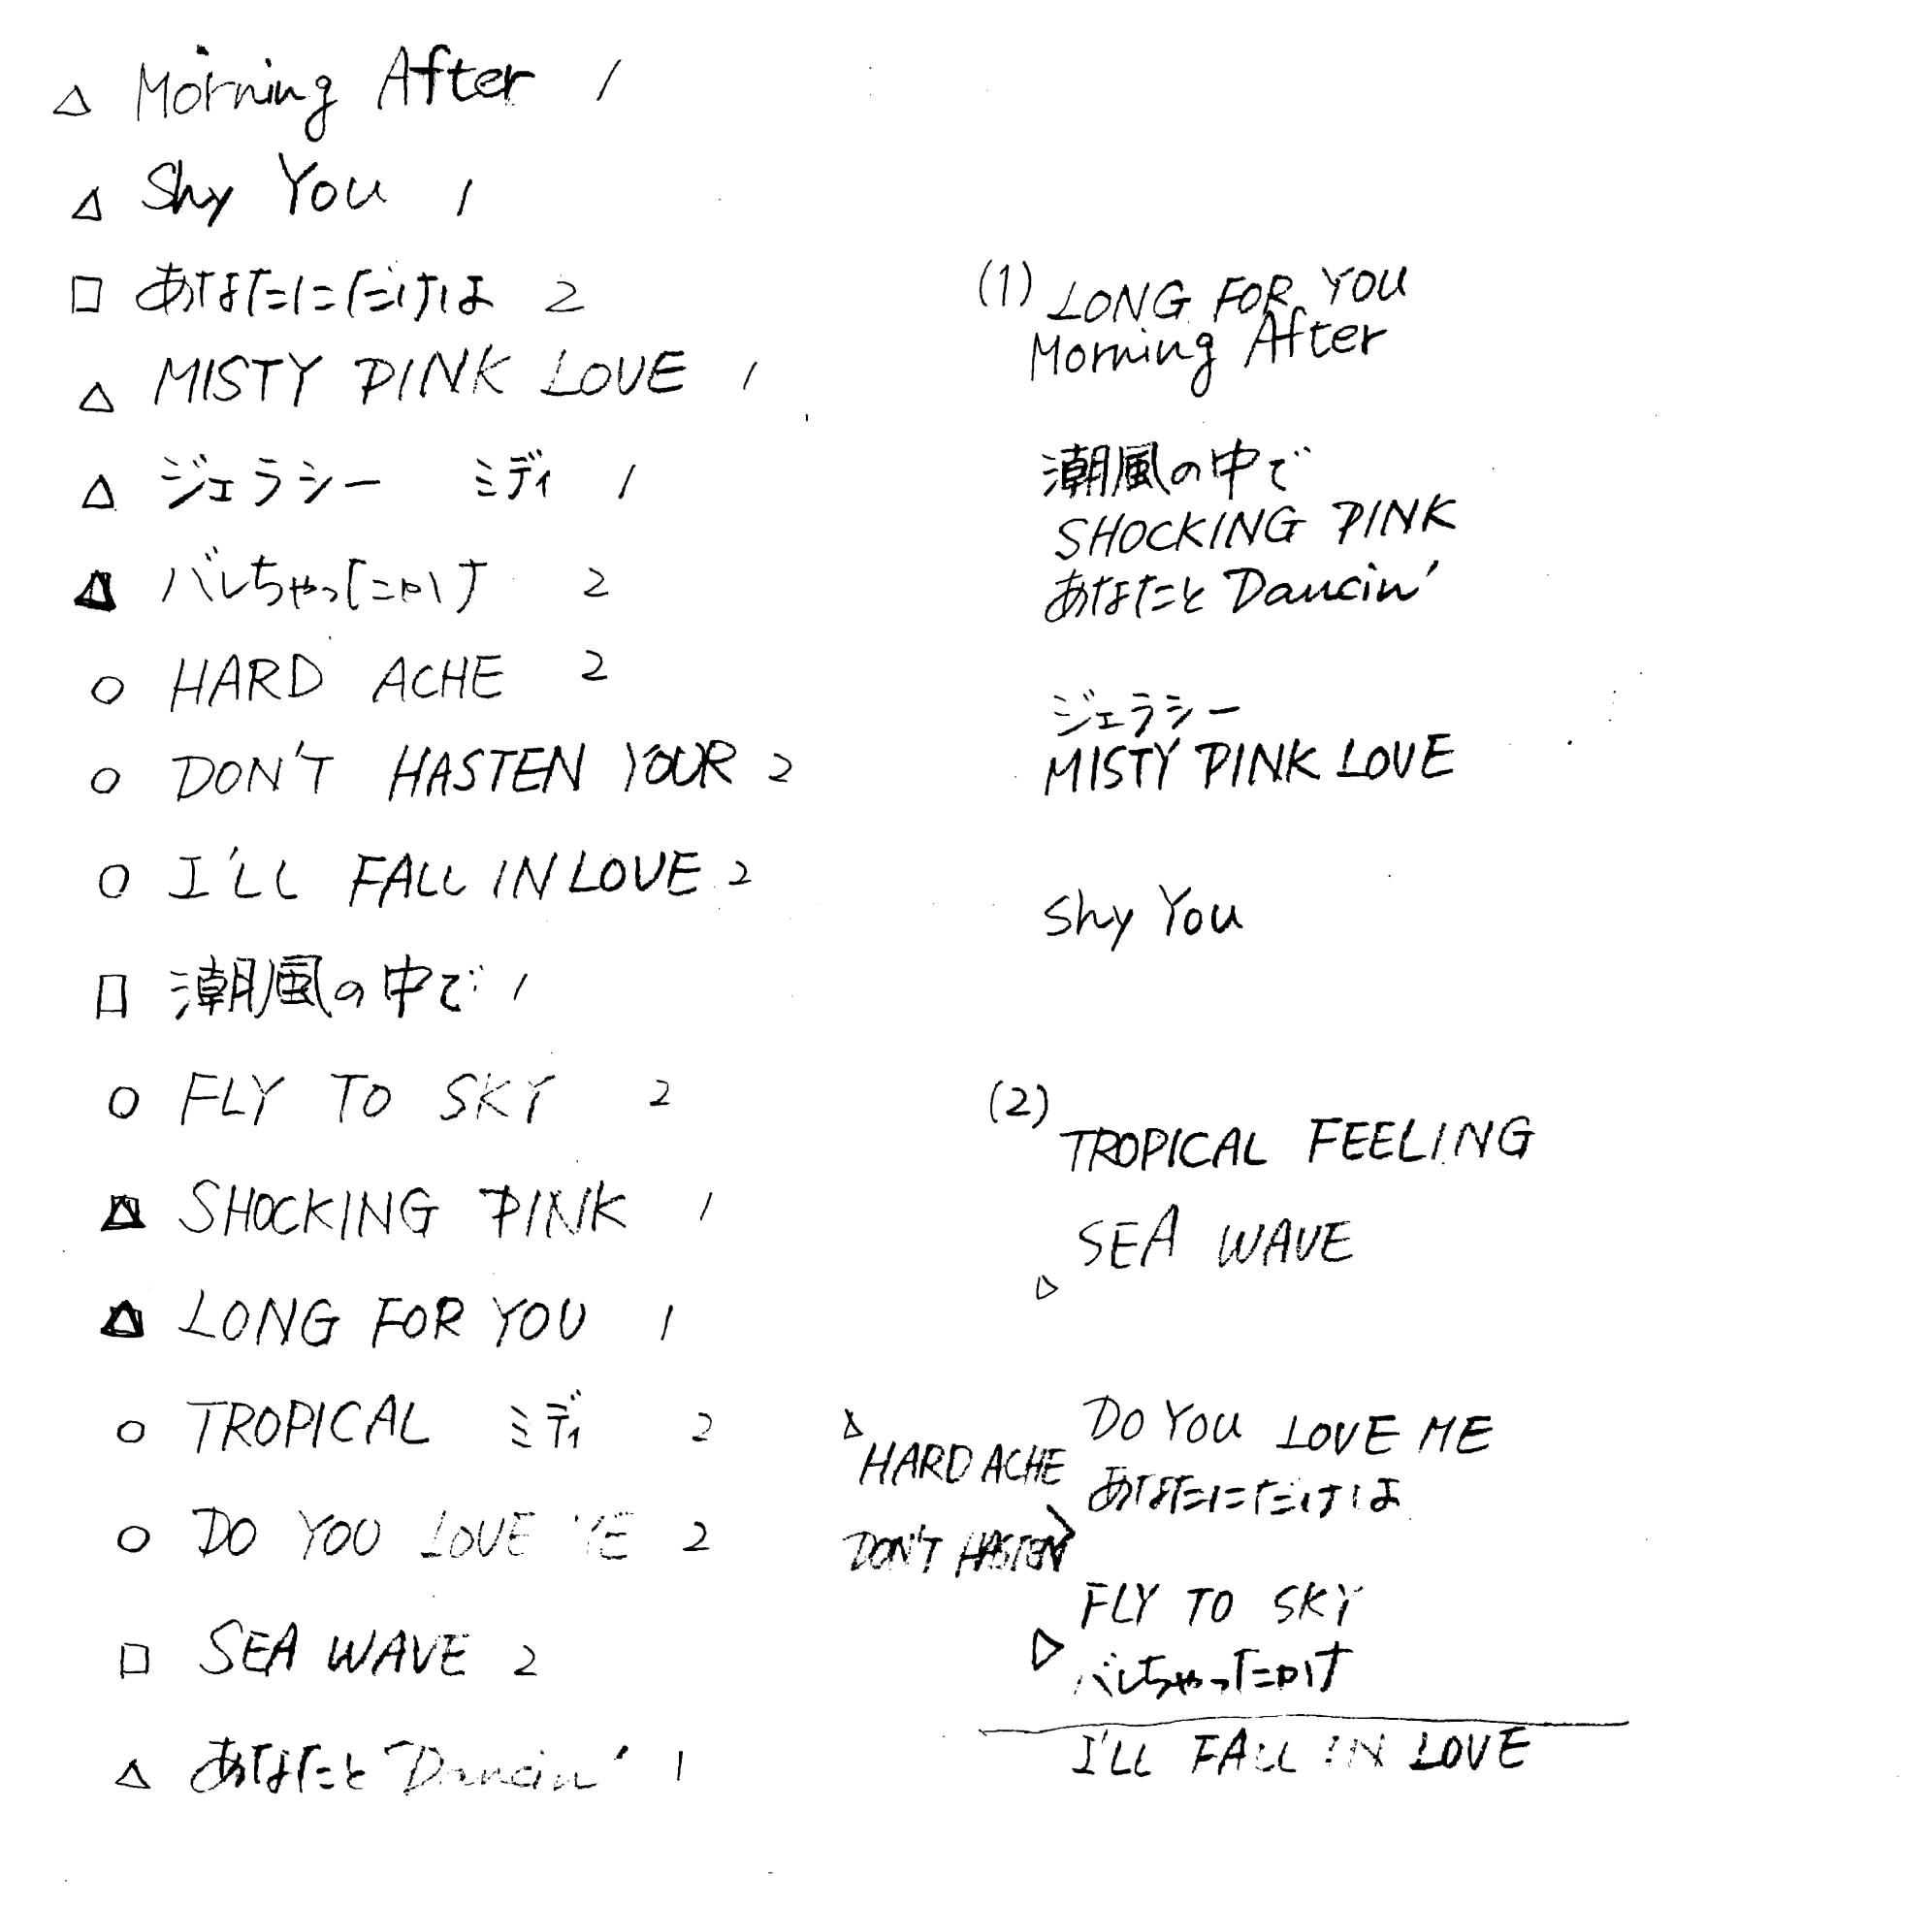 △ Morning After 1
△ Shy You 1
□ あなたにだけは 2
△ MISTY PINK LOVE 1
△ ジェラシー ミディ 1
△ バレちゃったわけ 2
○ HARD ACHE 2
○ DON'T HASTEN YOUR 2
○ I'LL FALL IN LOVE 2
□ 潮風の中で 1
○ FLY TO SKY 2
△ SHOCKING PINK 1
△ LONG FOR YOU 1
○ TROPICAL ミディ 2
○ DO YOU LOVE ME 2
□ SEA WAVE 2
△ あなたと Dancin' 1
(1) LONG FOR YOU
Morning After
潮風の中で
SHOCKING PINK
あなたと Dancin'
ジェラシー
MISTY PINK LOVE
Shy You
(2)
TROPICAL FEELING
SEA WAVE
▷
DO YOU LOVE ME
△ HARD ACHE
あなたにだけは
DON'T HASTEN
FLY TO SKY
▷ バレちゃったわけ
I'LL FALL IN LOVE